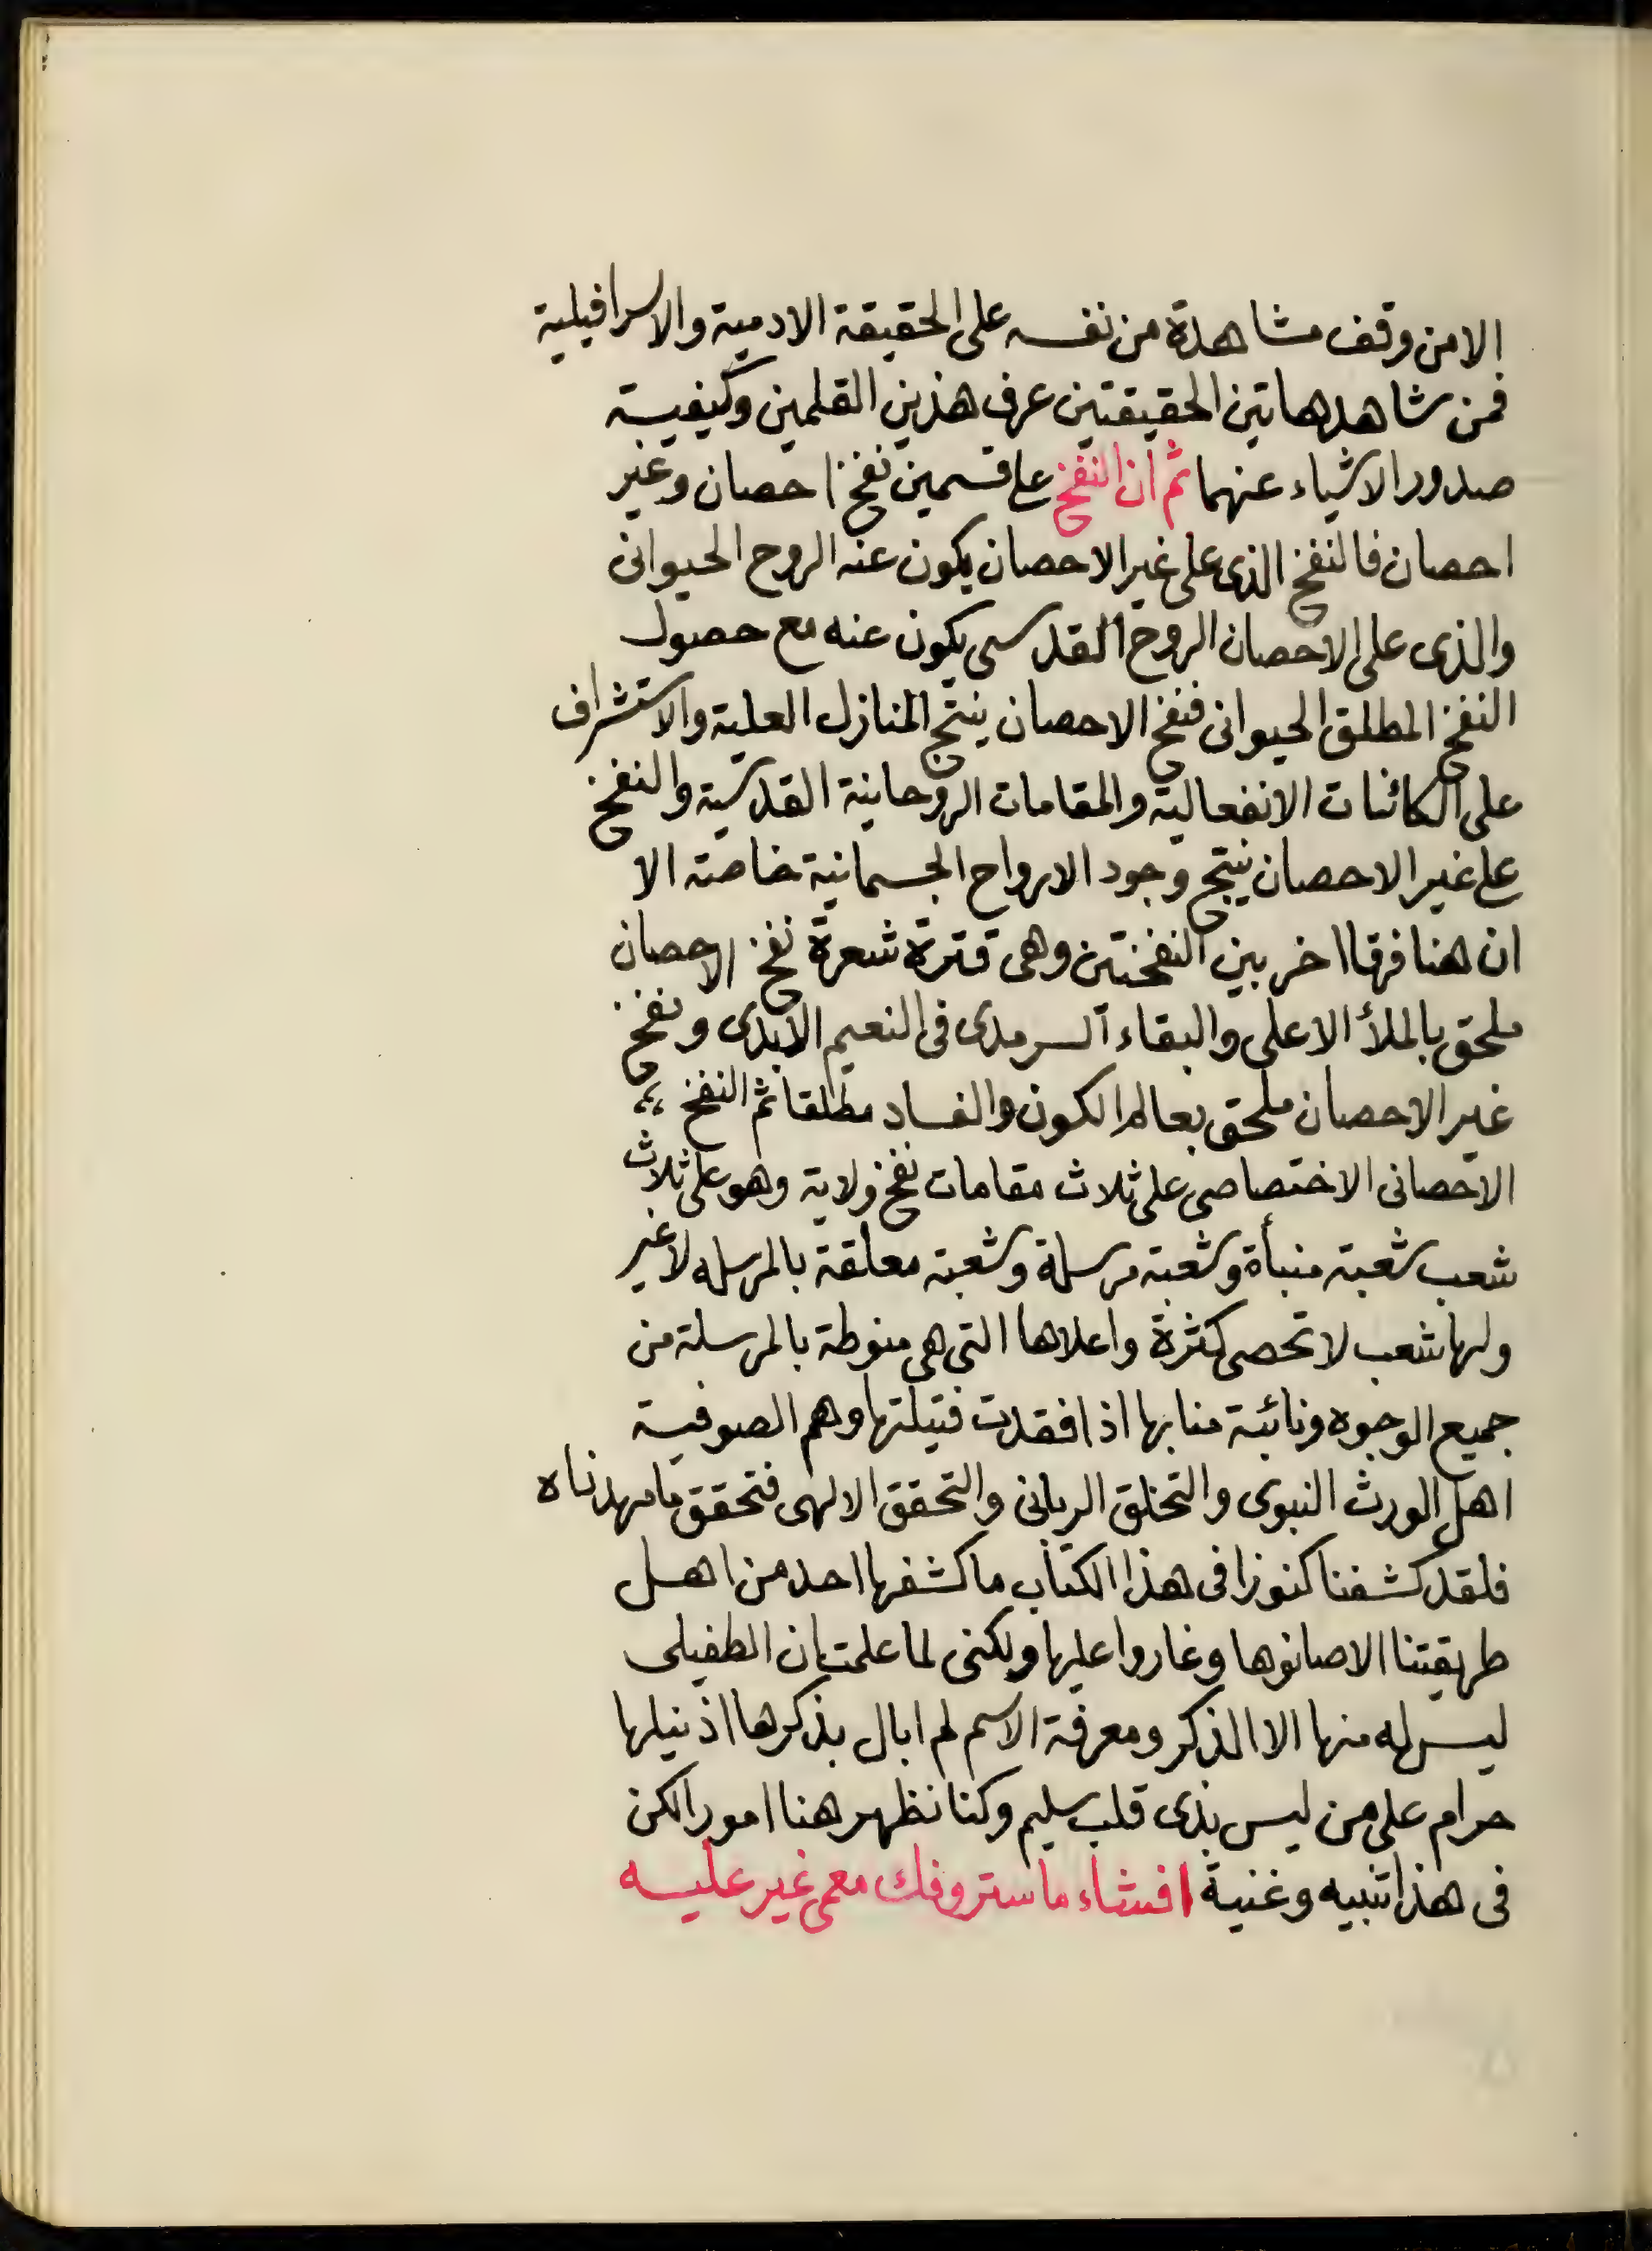 الا من وقف مشاهدة من نفسه على الحقيقة الادمية والاسرافيلية
فمن شاهد هاتين الحقيقتين عرف هذين القلمين وكيفية
صدور الاشياء عنهما ثم ان النفخ على قسمين نفخ احصان وغير
احصان فالنفخ الذى على غير الاحصان يكون عنه الروح الحيوانى
والذى على الاحصان الروح القدسى يكون عنه مع حصول
النفخ المطلق الحيوانى فنفخ الاحصان ينتج المنازل العلية والاستشراف
على الكائنات الانفعالية والمقامات الروحانية القدسية والنفخ
على غير الاحصان ينتج وجود الارواح الجسمانية خاصة الا
ان هنا فرقا اخر بين النفختين وهى قترة شعرة نفخ الاحصان
ملحق بالملأ الاعلى والبقاء السرمدى فى النعيم الابدى ونفخ
غير الاحصان ملحق بعالم الكون والفساد مطلقا ثم النفخ
الاحصانى الاختصاصى على ثلاث مقامات نفخ ولاية وهو على ثلاث
شعب شعبة منبأة وشعبة مرسلة وشعبة معلقة بالمرسله لا غير
ولها شعب لا تحصى كثرة واعلاها التى هى منوطة بالمرسلة من
جميع الوجوه ونائبة منابها اذا فقدت فتيلتها وهم الصوفية
اهل الورث النبوى والتخلق الربانى والتحقق الالهى فتحقق ما مهدناه
فلقد كشفنا كنوزا فى هذا الكتاب ما كشفها احد من اهل
طريقتنا الا صانوها وغاروا عليها ولكنى لما علمت ان الطفيلى
ليس له منها الا الذكر ومعرفة الاسم لم ابال بذكرها اذ نيلها
حرام على من ليس بذى قلب سليم وكنا نظهر هنا امورا لكن
فى هذا تنبيه وغنية افشاء ما ستر وفك معمى غير عليه